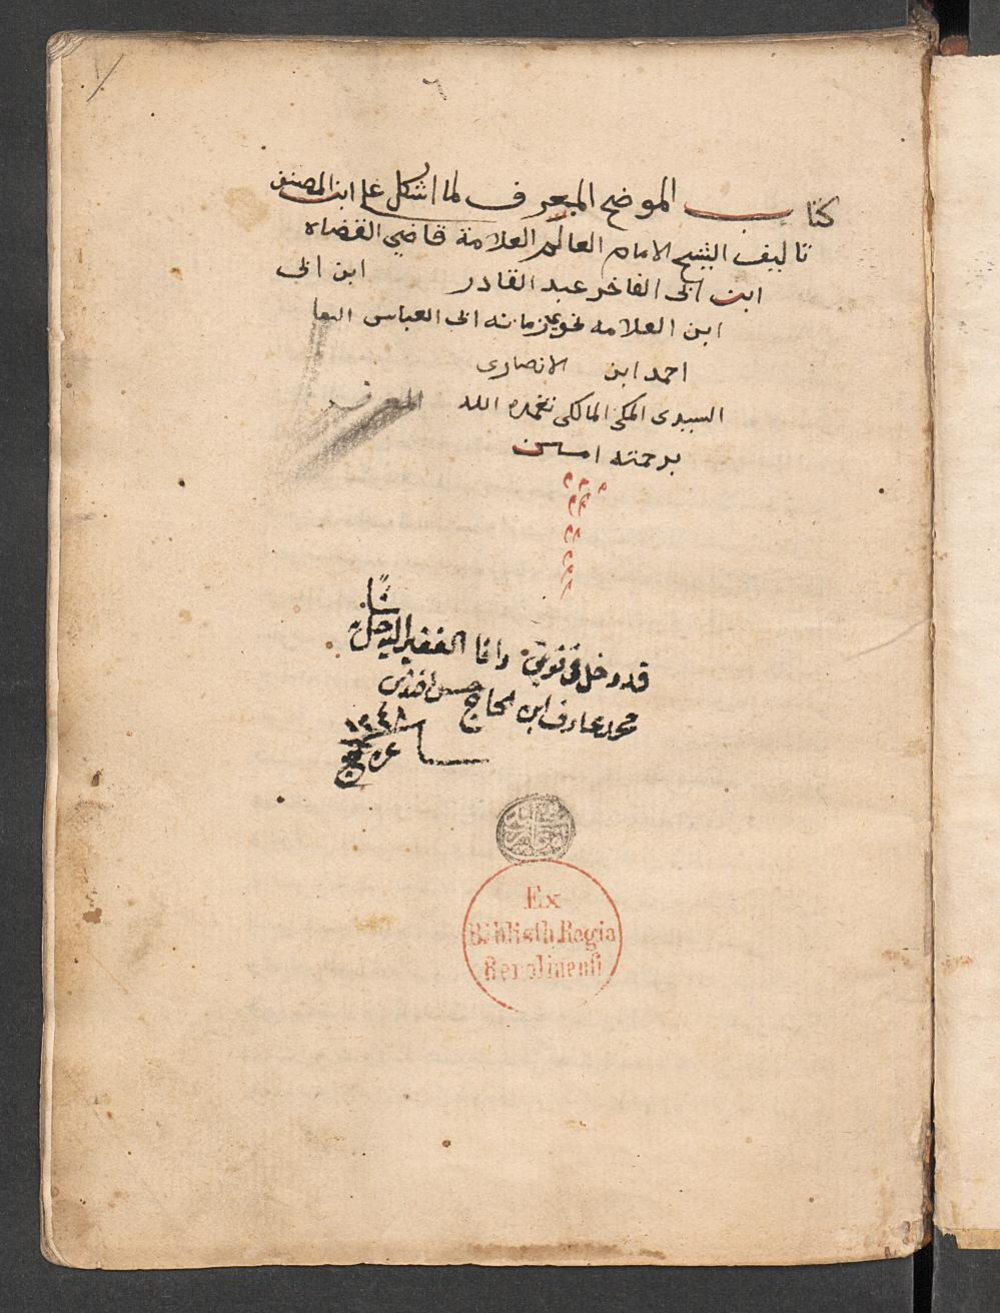 ٦
كتاب الموضح المعرف لما اشكل على ابن المصنف
تاليف الشيخ الامام العالم العلامة قاضي القضاه
ابن ابى الفاخر عبد القادر ابن ابى
ابن العلامه نحوى زمانه ابى العباس البقا
احمد ابن الانصارى
السيدى المكى المالكى تغمده الله
برحمته امين
قد دخل فى نوبتى وانا الفقير اليه جل شانه
محمد عارف ابن الحاج حسن افندى
١٢٤٨
Ex
Biblioth. Regia
Berolinensi